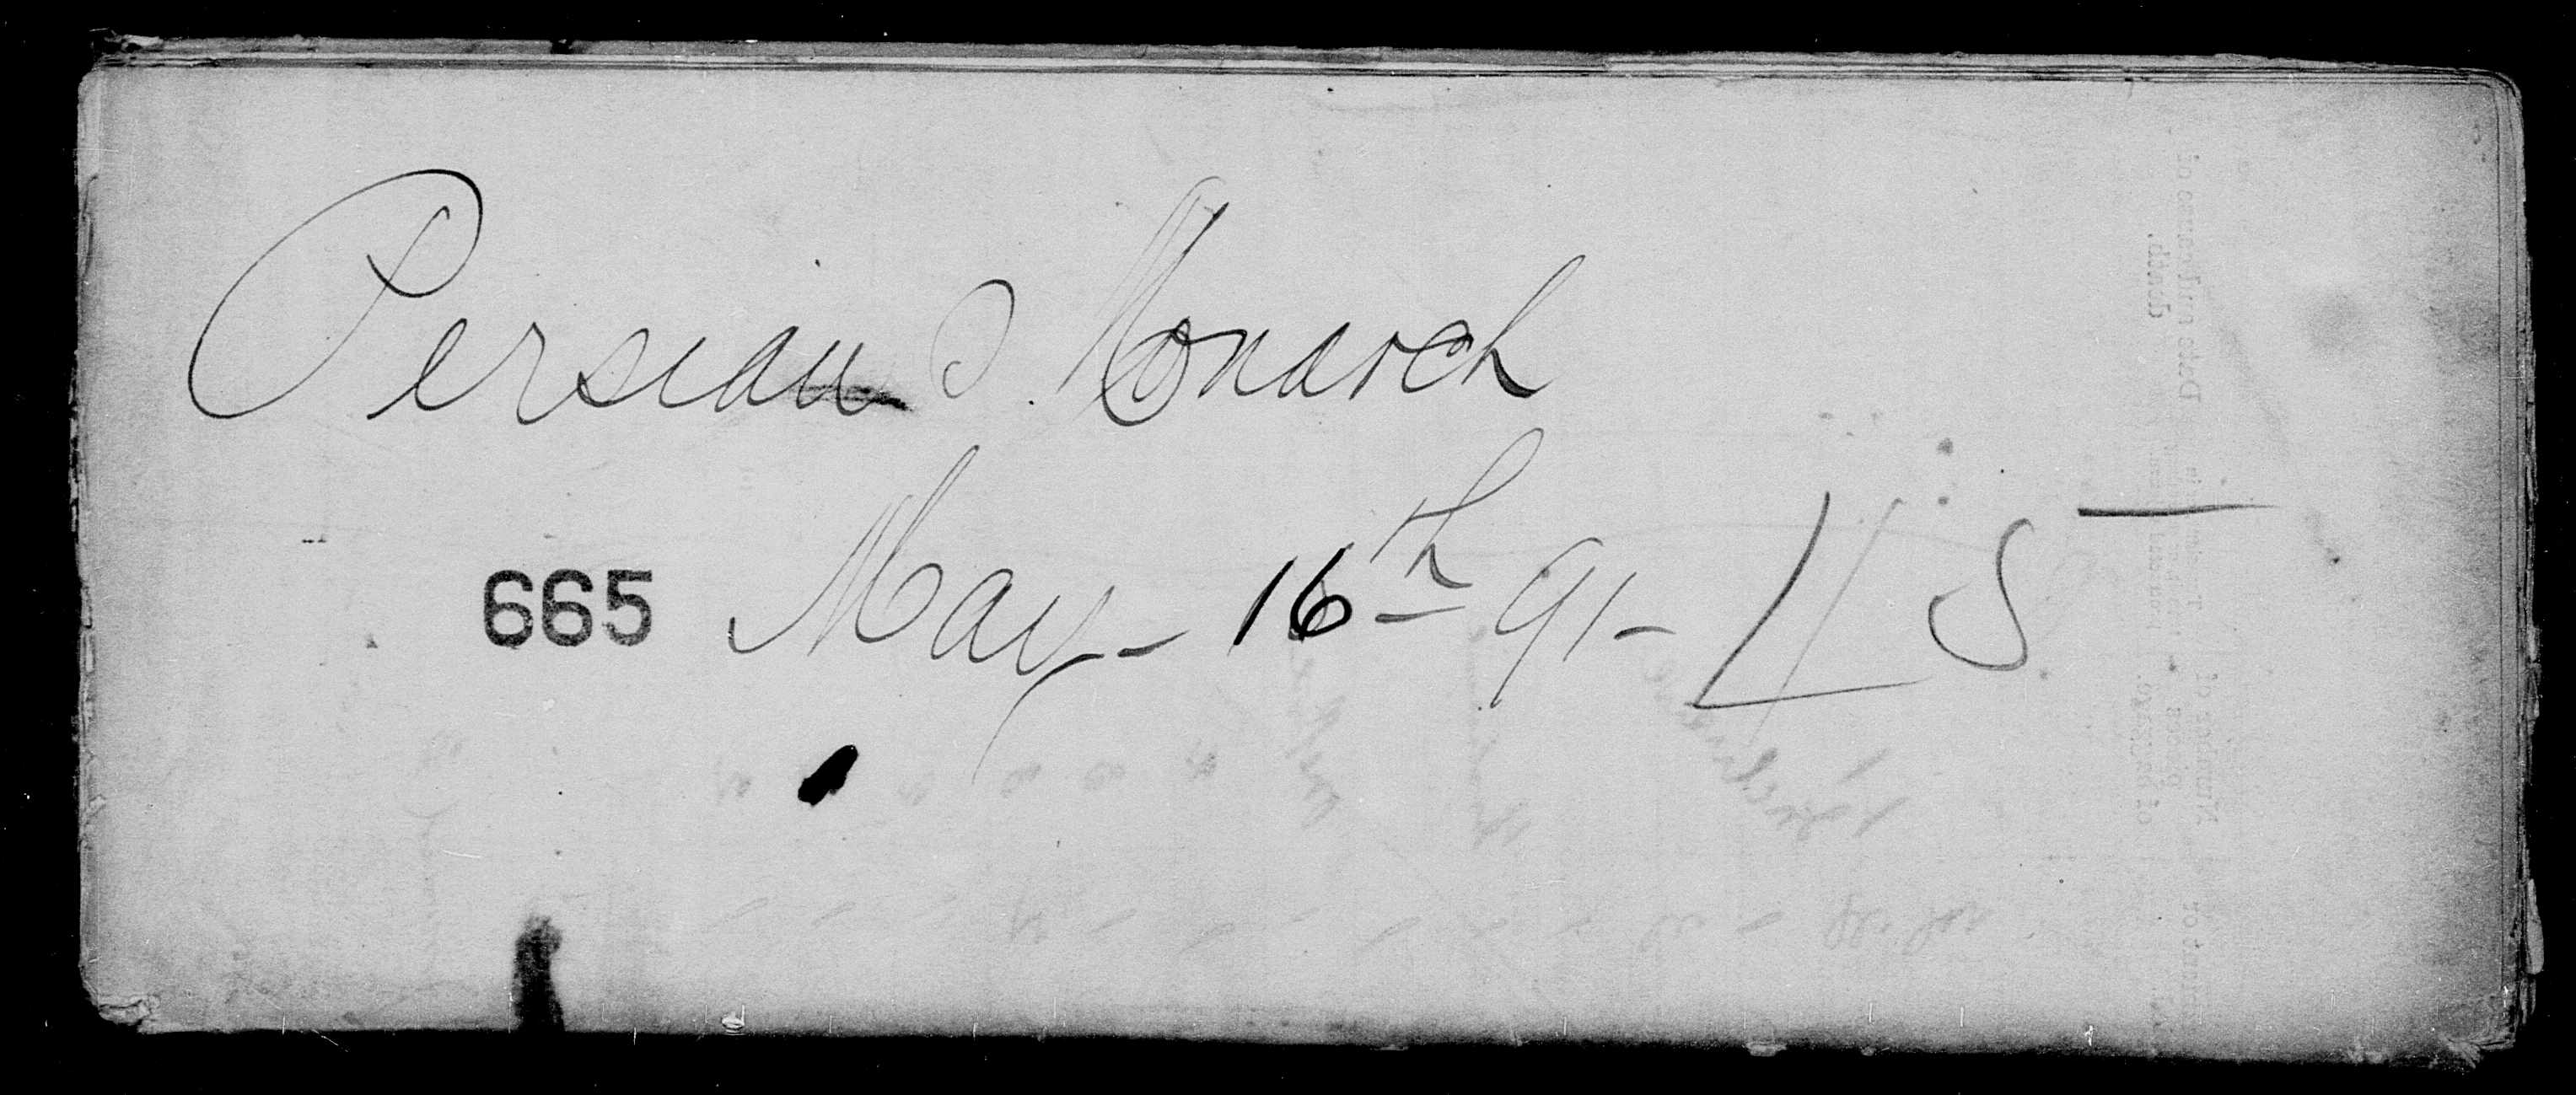 Persian Monarch
665 May - 16th 91 -